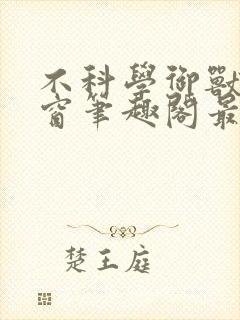 不科學御獸
窗筆趣閣最
楚王庭